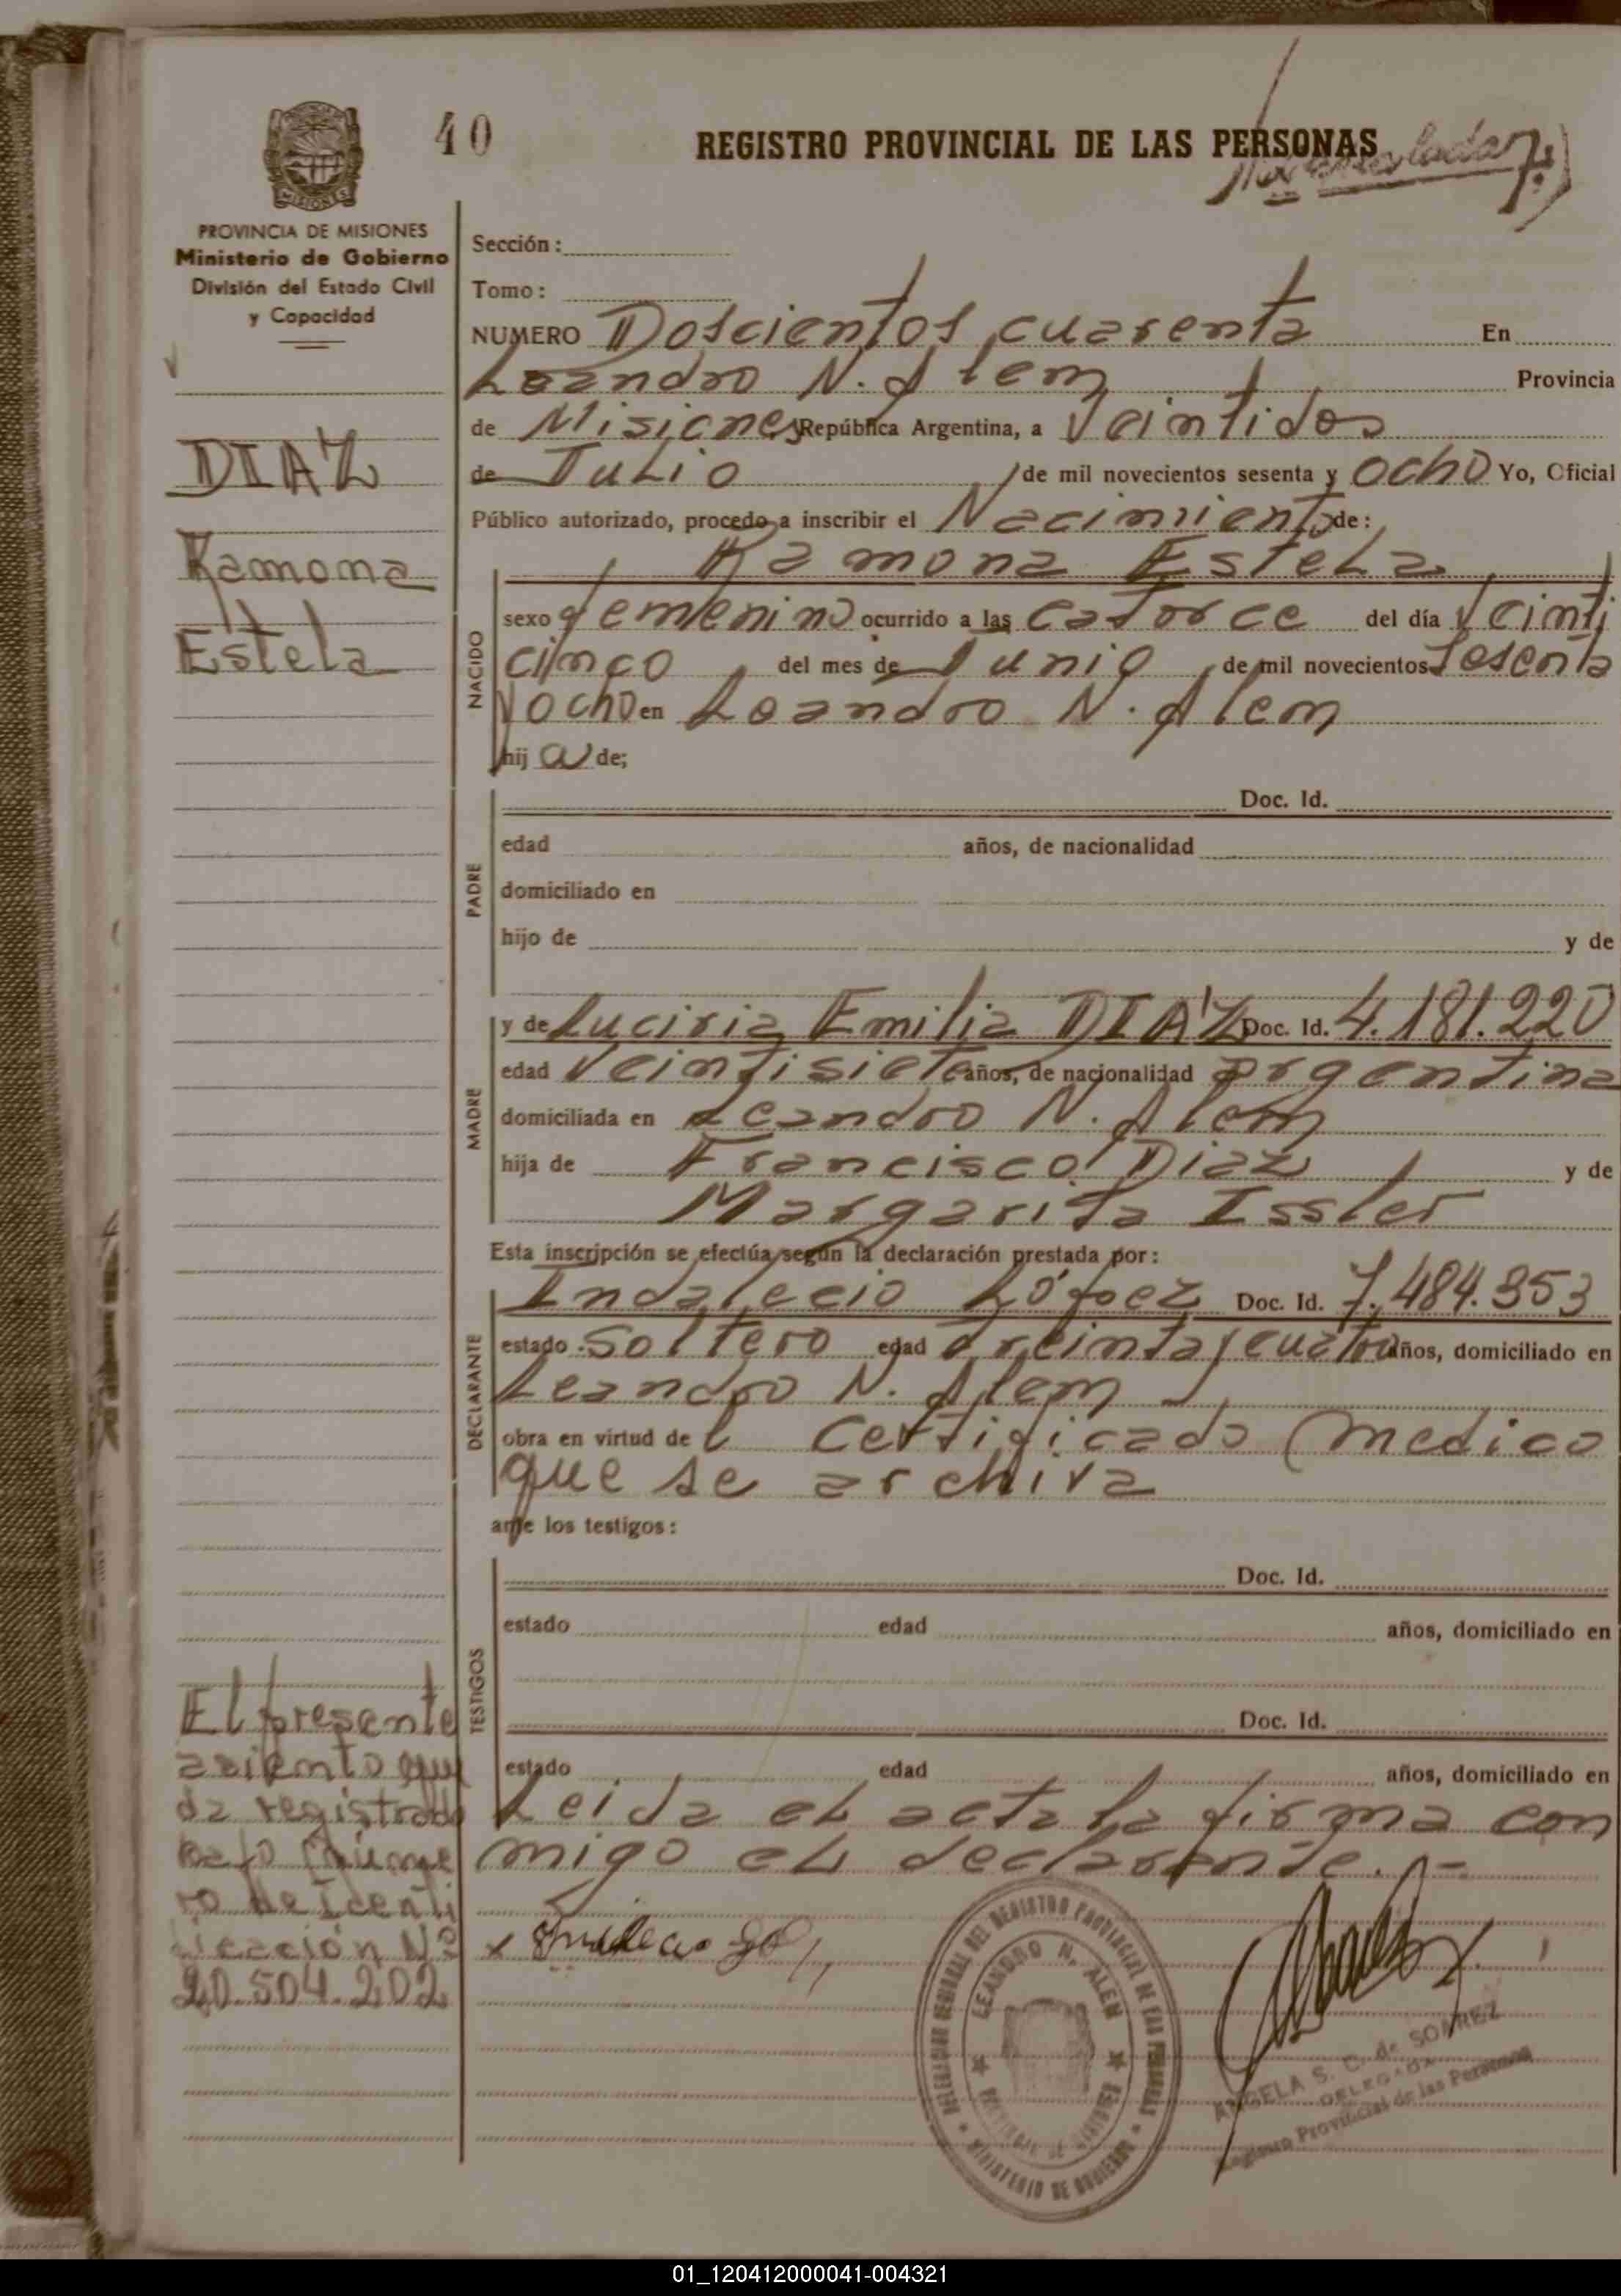 40
REGISTRO PROVINCIAL DE LAS PERSONAS
PROVINCIA DE MISIONES
Ministerio de Gobierno
División del Estado Civil
y Capacidad
DIAZ
Ramona
Estela
Sección:
Tomo:
NUMERO Doscientos cuarenta En
Leandro N. Alem Provincia
de Misiones República Argentina, a Veintidos
de Julio de mil novecientos sesenta y ocho Yo, Oficial
Público autorizado, procedo a inscribir el Nacimiento de:
NACIDO
Ramona Estela
sexo femenino ocurrido a las catorce del día Veinti
cinco del mes de Junio de mil novecientos sesenta
y ocho en Leandro N. Alem
hij a de;
PADRE
Doc. Id.
edad años, de nacionalidad
domiciliado en
hijo de y de
MADRE
y de Luciria Emilia DIAZ Doc. Id. 4.181.220
edad Veintisiete años, de nacionalidad argentina
domiciliada en Leandro N. Alem
hija de Francisco Diaz y de
Margarita Issler
Esta inscripción se efectúa según la declaración prestada por:
DECLARANTE
Indalecio López Doc. Id. 7.484.353
estado soltero edad treinta y cuatro años, domiciliado en
Leandro N. Alem
obra en virtud de l certificado medico
que se archiva
ante los testigos:
TESTIGOS
Doc. Id.
estado edad años, domiciliado en
Doc. Id.
estado edad años, domiciliado en
Leida el acta la firma con
migo el declarante.-
El presente
asiento que
da registrado
bajo núme
ro de Identi
ficación Nº
20.504.202
DELEGACION REGIONAL DEL REGISTRO PROVINCIAL DE LAS PERSONAS
LEANDRO N. ALEM
PROVINCIA DE MISIONES
MINISTERIO DE GOBIERNO
ANGELA S. C. de SOAREZ
DELEGADA
Registro Provincial de las Personas
01_120412000041-004321